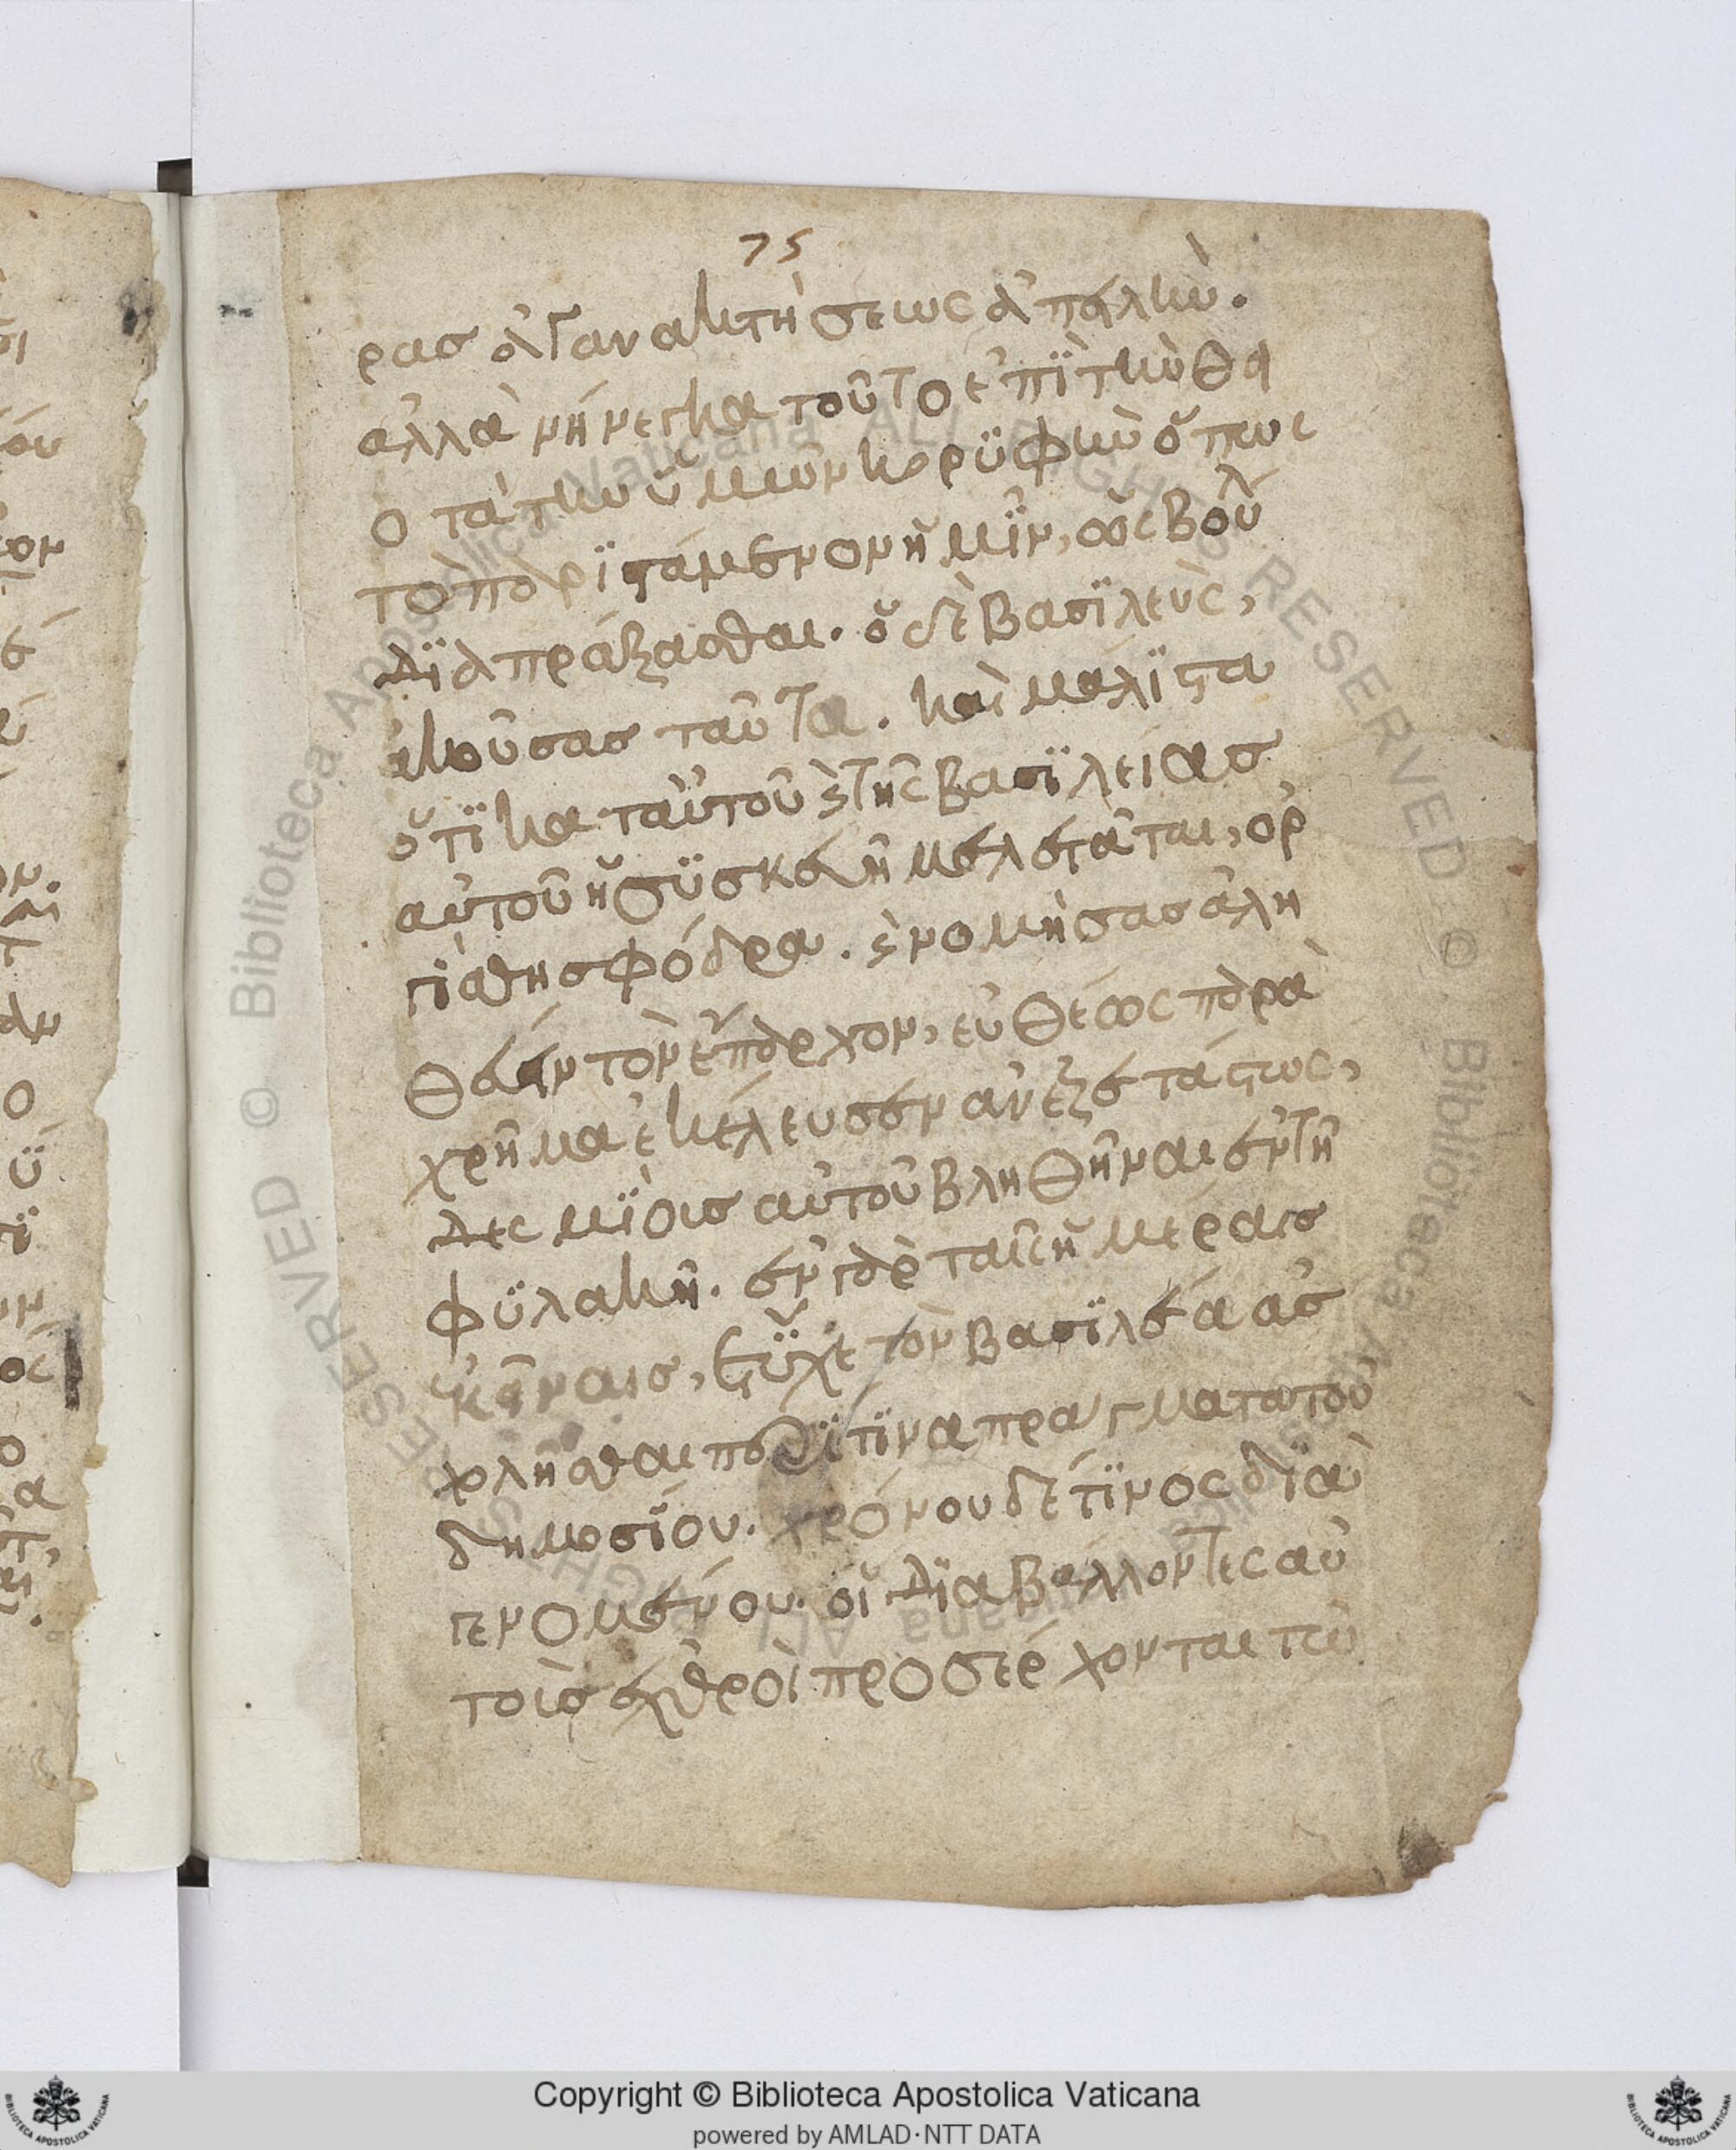 75
ρασ ἀγανακτήσεως ἀπαλκὺ.
ἀλλὰ μήνεγκα τοῦτο ἐπὶ τὴν θα
ὁτάτην ὑμῶν κορϋφὴν ὅπως
τὸ παρϊστάμενον ἡμῖν, ὡς βούλ
δϊαπράξασθαι. ὁ δὲ βασϊλεὺς,
ἀκούσας ταῦτα. καὶ μάλϊστα
ὅτϊ κατ αὐτοῦ ϛ τῆς βασϊλείασ
αὐτοῦ ἡ σϋσκευὴ μελετᾶται, ὀρ
γίσθη σφόδρα. ϛ νομήσασ ἀλη
θεύειν τὸν ἔπαρχον, εὐθέως παρα
χρῆμα ἐκέλευσεν ἀνεξετάστως,
δεσμίοισ αὐτοὺ βληθῆναι ἐν τῆ
φϋλακῆ. ἐν γὰρ ταῖς ἡμέραισ
ἐκείναισ, ἔτϋχε τὸν βασϊλέα ἀσ
χολῆσθαι περί τϊνα πραγματα τοῦ
δημοσΐου. χρόνου δέ τϊνος δϊα
γενομένου. οἱ δϊαβάλλοντες αὐ
τοὶσ ἐχθροὶ προσέρχονται τῶ
Copyright © Biblioteca Apostolica Vaticana
powered by AMLAD·NTT DATA